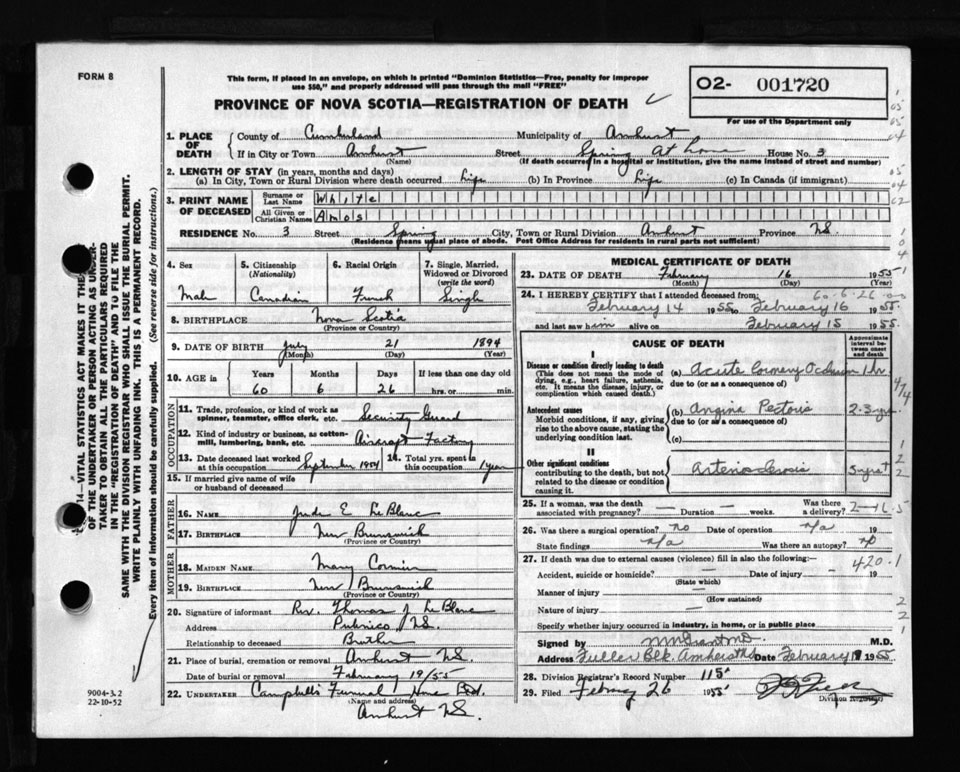 FORM 8
This form, if placed in an envelope, on which is printed "Dominion Statistics—Free, penalty for improper
use $50," and properly addressed will pass through the mail "FREE"
PROVINCE OF NOVA SCOTIA—REGISTRATION OF DEATH
O2- 001720
For use of the Department only
1. PLACE OF DEATH
County of Cumberland Municipality of Amherst
If in City or Town Amherst Street Spring At home House No. 3
(Name) (If death occurred in a hospital or institution, give the name instead of street and number)
2. LENGTH OF STAY (in years, months and days)
(a) In City, Town or Rural Division where death occurred Life (b) In Province Life (c) In Canada (if immigrant)
3. PRINT NAME OF DECEASED
Surname or Last Name White
All Given or Christian Names Amos
RESIDENCE No. 3 Street Spring City, Town or Rural Division Amherst Province NS.
(Residence means usual place of abode. Post Office Address for residents in rural parts not sufficient)
4. Sex Male
5. Citizenship (Nationality) Canadian
6. Racial Origin French
7. Single, Married, Widowed or Divorced (write the word) Single
8. BIRTHPLACE Nova Scotia
(Province or Country)
9. DATE OF BIRTH July 21 1894
(Month) (Day) (Year)
10. AGE in Years Months Days If less than one day old
60 6 26 hrs. or min.
OCCUPATION
11. Trade, profession, or kind of work as spinner, teamster, office clerk, etc. Security Guard
12. Kind of industry or business, as cotton-mill, lumbering, bank, etc. Aircraft Factory
13. Date deceased last worked at this occupation September 1954
14. Total yrs. spent in this occupation 1 year
15. If married give name of wife or husband of deceased
FATHER
16. NAME Jude E LeBlanc
17. BIRTHPLACE New Brunswick
(Province or Country)
MOTHER
18. MAIDEN NAME Mary Cormier
19. BIRTHPLACE New Brunswick
(Province or Country)
20. Signature of informant Rev. Thomas J. LeBlanc
Address Pubnico NS.
Relationship to deceased Brother
21. Place of burial, cremation or removal Amherst NS.
Date of burial or removal February 19/55
22. UNDERTAKER Campbell's Funeral Home
(Name and address)
Amherst NS.
MEDICAL CERTIFICATE OF DEATH
23. DATE OF DEATH February 16 1955
(Month) (Day) (Year)
24. I HEREBY CERTIFY that I attended deceased from 60-6-26
February 14 1955 to February 16 1955.
and last saw him alive on February 15 1955.
CAUSE OF DEATH
Approximate interval between onset and death
I
Disease or condition directly leading to death
(This does not mean the mode of dying, e.g., heart failure, asthenia, etc. It means the disease, injury, or complication which caused death.)
(a) Acute Coronary Occlusion 1 hr
due to (or as a consequence of)
Antecedent causes
Morbid conditions, if any, giving rise to the above cause, stating the underlying condition last.
(b) Angina Pectoris 2-3 yrs
due to (or as a consequence of)
(c)
II
Other significant conditions
contributing to the death, but not related to the disease or condition causing it.
Arteriosclerosis
25. If a woman, was the death associated with pregnancy? — Duration — weeks. Was there a delivery?
2-16-5
26. Was there a surgical operation? No Date of operation n/a 19
State findings n/a Was there an autopsy? No
27. If death was due to external causes (violence) fill in also the following:— 420.1
Accident, suicide or homicide? — Date of injury — 19
(State which)
Manner of injury —
(How sustained)
Nature of injury —
Specify whether injury occurred in industry, in home, or in public place
Signed by M.D.
Address Fuller Blk. Amherst NS Date February 1955
28. Division Registrar's Record Number 115
29. Filed February 26 1955
Division Registrar
14—VITAL STATISTICS ACT MAKES IT THE DUTY
OF THE UNDERTAKER OR PERSON ACTING AS UNDER-
TAKER TO OBTAIN ALL THE PARTICULARS REQUIRED
IN THE "REGISTRATION OF DEATH" AND TO FILE THE
SAME WITH THE DIVISION REGISTRAR WHO SHALL ISSUE THE BURIAL PERMIT.
WRITE PLAINLY WITH UNFADING INK. THIS IS A PERMANENT RECORD.
Every item of information should be carefully supplied. (See reverse side for instructions.)
9004-3.2
22-10-52